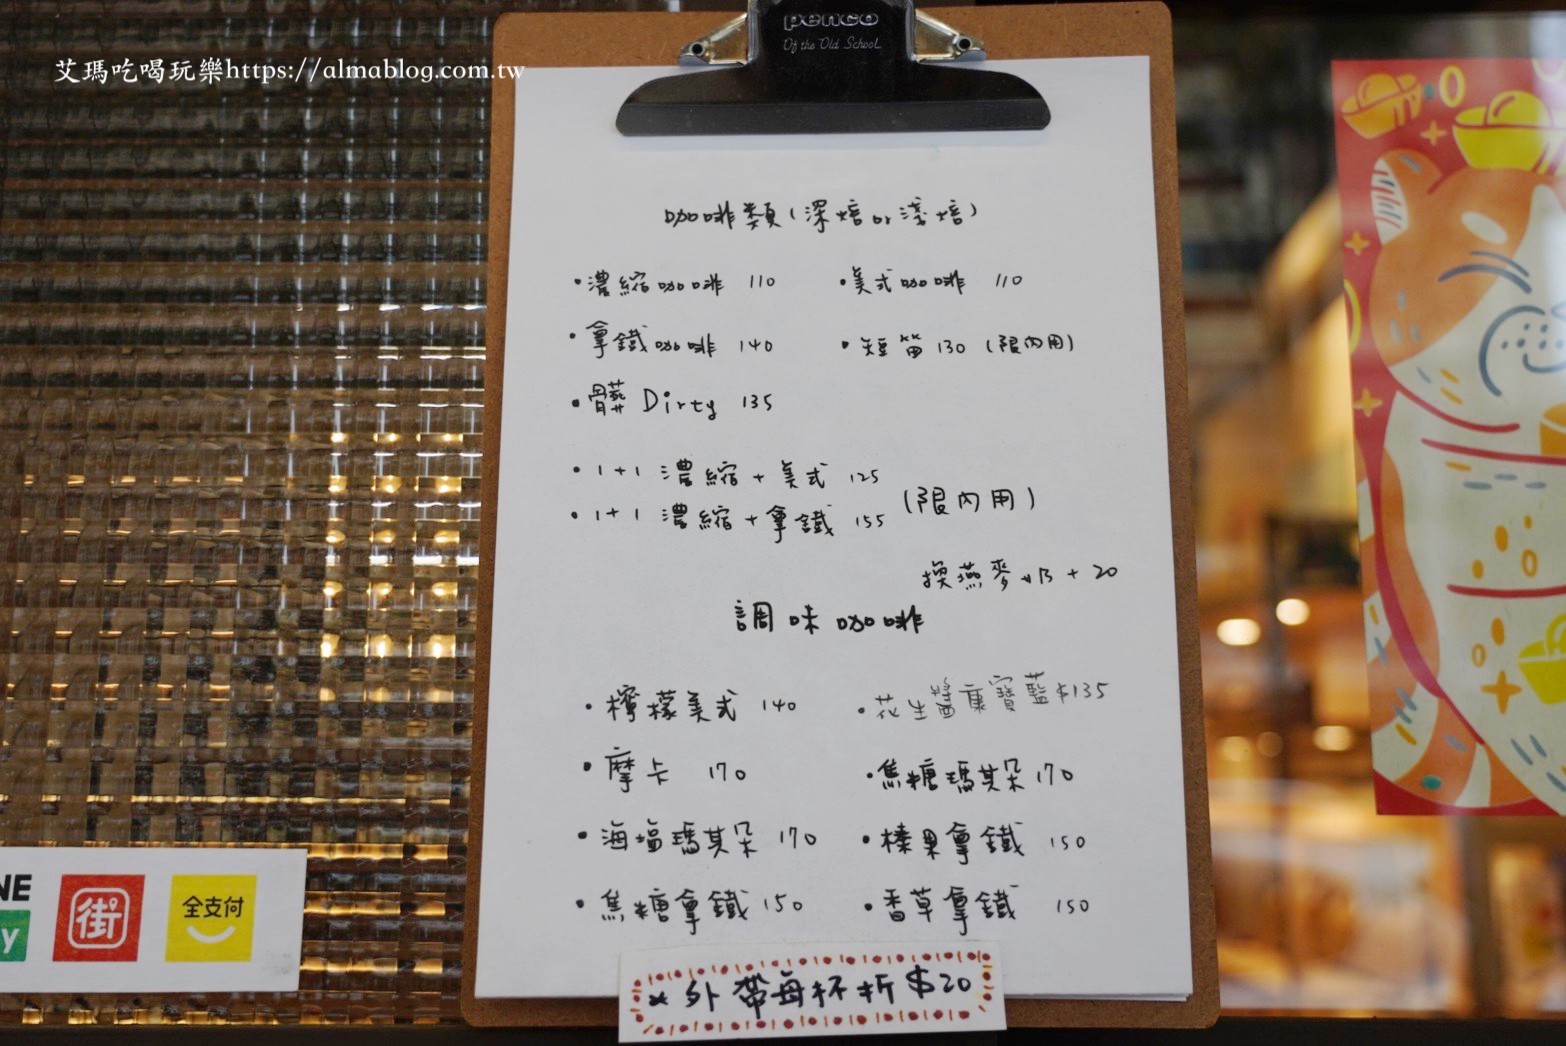 艾瑪吃喝玩樂https://almablog.com.tw
penco
Of the Old School
咖啡類(深焙or淺焙)
•濃縮咖啡 110 •美式咖啡 110
•拿鐵咖啡 140 •短笛130 (限內用)
•髒 Dirty 135
•1+1 濃縮+美式 125
•1+1 濃縮+拿鐵 155 (限內用)
換燕麥奶+20
調味咖啡
•檸檬美式 140 •花生醬康寶藍$135
•摩卡 170 •焦糖瑪其朵170
•海塩瑪其朵 170 •榛果拿鐵 150
•焦糖拿鐵 150 •香草拿鐵 150
*外帶每杯折$20
NE
y
街
全支付